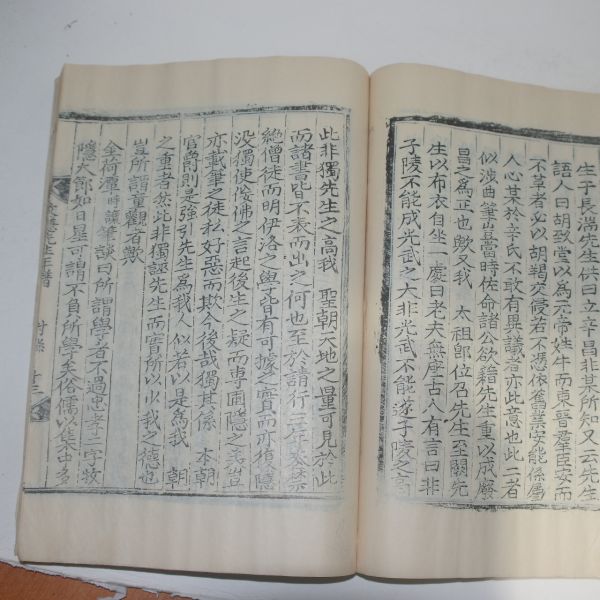 生子長湍先生供曰立辛昌非其所知又云先生
語人曰胡致堂以為元帝姓牛而東晉羣臣安而
不革者必以胡羯交侵若不憑依舊業安能係屬
人心某於辛氏不敢有異議者亦此意也此二者
似涉曲筆豈當時佐命諸公欲籍先生重以成廢
昌之為正也歟又我 太祖即位召先生至闕先
生以布衣自坐一處曰老夫無座古人有言曰非
子陵不能成光武之大非光武不能遂子陵之高
此非獨先生之高我 聖朝天地之量可見於此
而諸書皆不表而出之何也至於請行三年喪禁
絶僧徒而明伊洛之學皆有可據之實而亦復隱
没獨使佞佛之言起後生之疑而專圃隱之美豈
亦載筆之徒私好惡而欺今後哉獨其係 本朝
官爵則是強引先生為我人似若以是為我 朝
之重者然此非獨誣先生而實所以小我之德也
豈所謂童觀者歟
金荷潭時讓筆談曰所謂學者不過忠孝二字牧
隱大節如日星可謂不負所學矣俗儒以集中多
先生年譜
附錄
十三